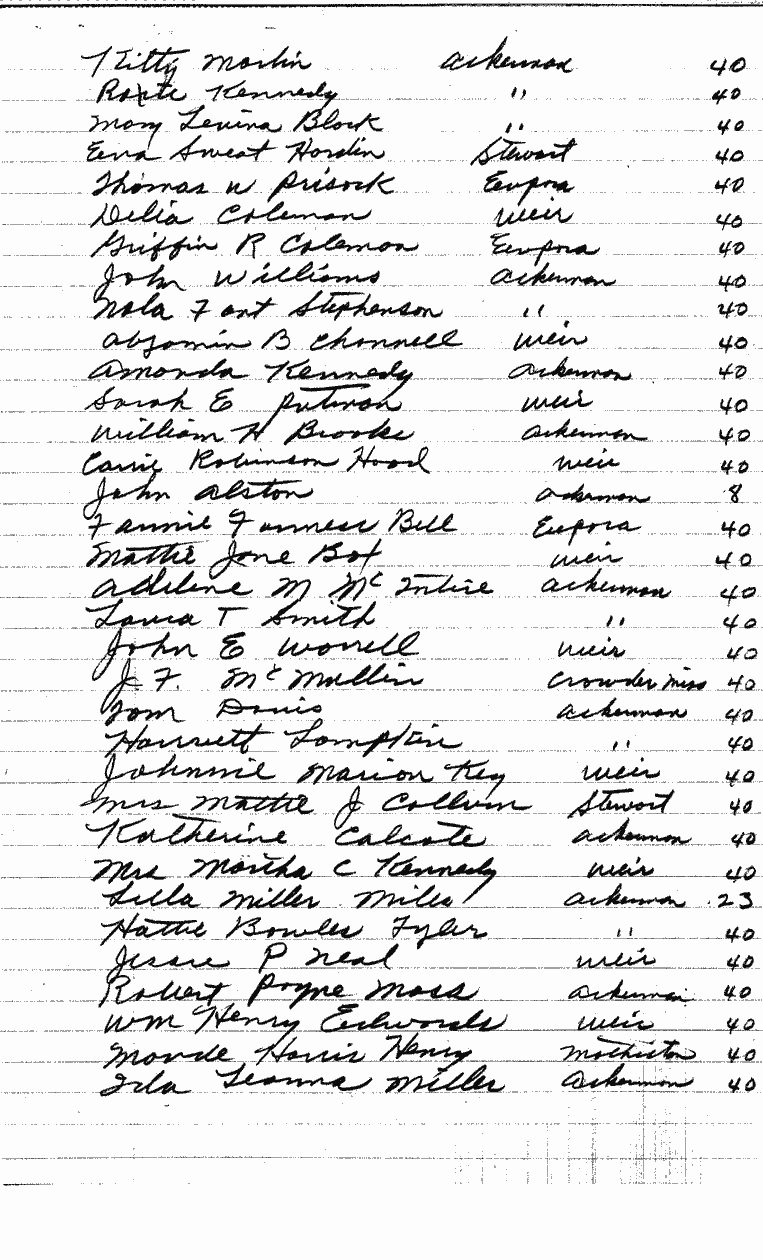 Kitty Martin Ackerman 40
Kennedy " 40
Mary Levina Block " 40
Eera Sweat Hardin Stewart 40
Thomas W Prisock Eupora 40
Delia Coleman Weir 40
Griffin R Coleman Eupora 40
John Williams Ackerman 40
Nola Fant Stephenson " 40
Abjamin B Channell Weir 40
Amanda Kennedy Ackerman 40
Sarah E Putman Weir 40
William H Brooks Ackerman 40
Carrie Robinson Hood Weir 40
John Alston Ackerman 8
Fannie Funness Bell Eupora 40
Mattie Jane Box Weir 40
Adeline M McIntire Ackerman 40
Laura T Smith " 40
John E Worrell Weir 40
J. F. McMullin Crowder Miss 40
Tom Davis Ackerman 40
Harriett Lampkin " 40
Johnnie Marion Key Weir 40
Mrs Mattie J Collum Stewart 40
Katherine Calcote Ackerman 40
Mrs Martha C Kennedy Weir 40
Lilla Miller Miles Ackerman 23
Hattie Bowles Tyler " 40
Jessie P Neal Weir 40
Robert Payne Moss Ackerman 40
Wm Henry Edwards Weir 40
Maude Harris Henry Mathiston 40
Ida Leanna Miller Ackerman 40